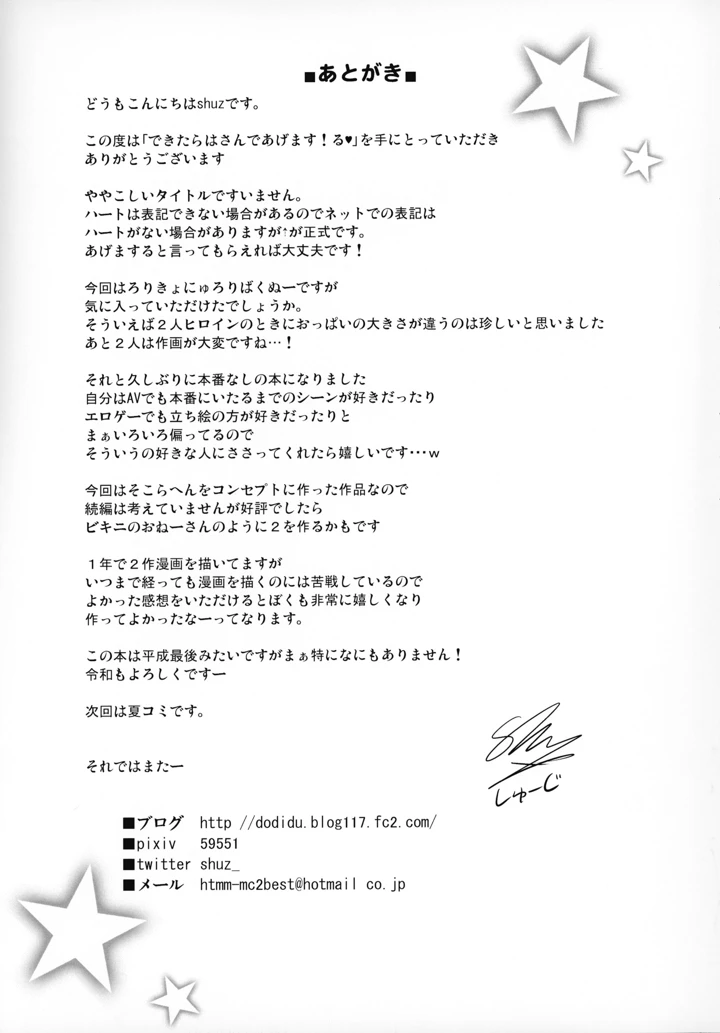 ■あとがき■
どうもこんにちはshuzです。
この度は「できたらはさんであげます！る♥」を手にとっていただき
ありがとうございます
ややこしいタイトルですいません。
ハートは表記できない場合があるのでネットでの表記は
ハートがない場合がありますが↑が正式です。
あげますると言ってもらえれば大丈夫です！
今回はろりきょにゅろりばくぬーですが
気に入っていただけたでしょうか。
そういえば２人ヒロインのときにおっぱいの大きさが違うのは珍しいと思いました
あと２人は作画が大変ですね…！
それと久しぶりに本番なしの本になりました
自分はAVでも本番にいたるまでのシーンが好きだったり
エロゲーでも立ち絵の方が好きだったりと
まぁいろいろ偏ってるので
そういうの好きな人にささってくれたら嬉しいです･･･ｗ
今回はそこらへんをコンセプトに作った作品なので
続編は考えていませんが好評でしたら
ビキニのおねーさんのように２を作るかもです
１年で２作漫画を描いてますが
いつまで経っても漫画を描くのには苦戦しているので
よかった感想をいただけるとぼくも非常に嬉しくなり
作ってよかったなーってなります。
この本は平成最後みたいですがまぁ特になにもありません！
令和もよろしくですー
次回は夏コミです。
それではまたー
shuz
しゅーじ
■ブログ　http //dodidu.blog117.fc2.com/
■pixiv　59551
■twitter shuz_
■メール　htmm-mc2best@hotmail co.jp